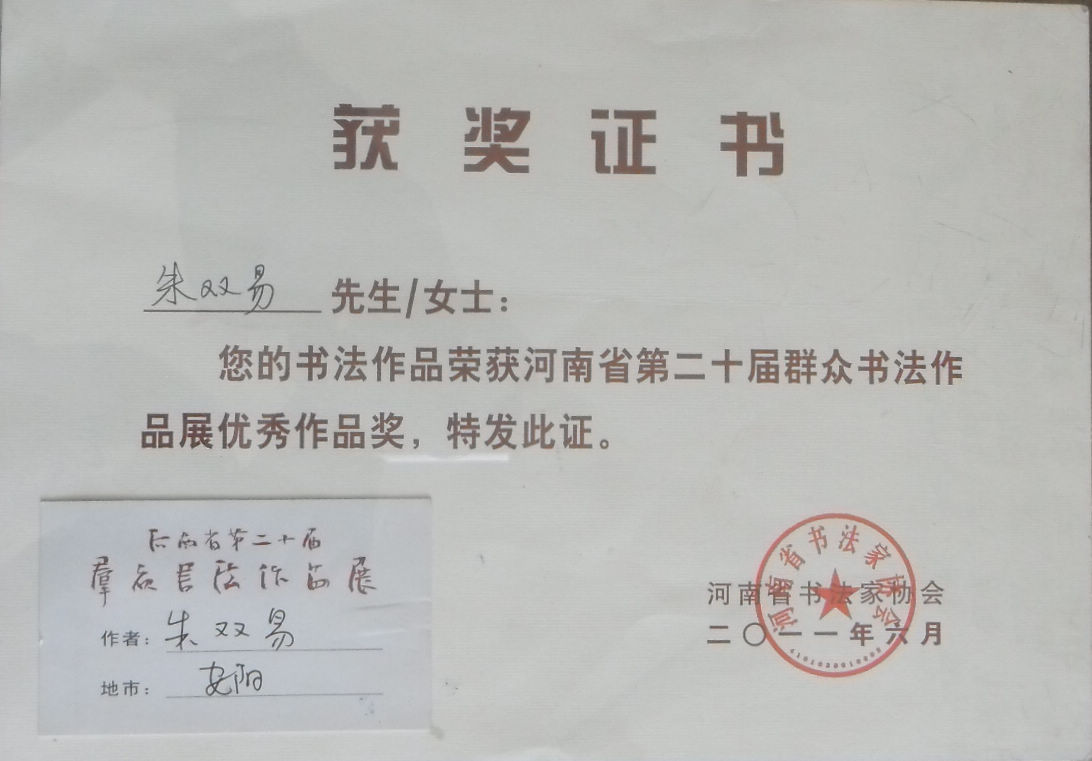 获奖证书
朱双易 先生/女士：
您的书法作品荣获河南省第二十届群众书法作
品展优秀作品奖，特发此证。
河南省第二十届
群众书法作品展
作者：朱双易
地市：安阳
河南省书法家协会
河南省书法家协会
二〇一一年六月